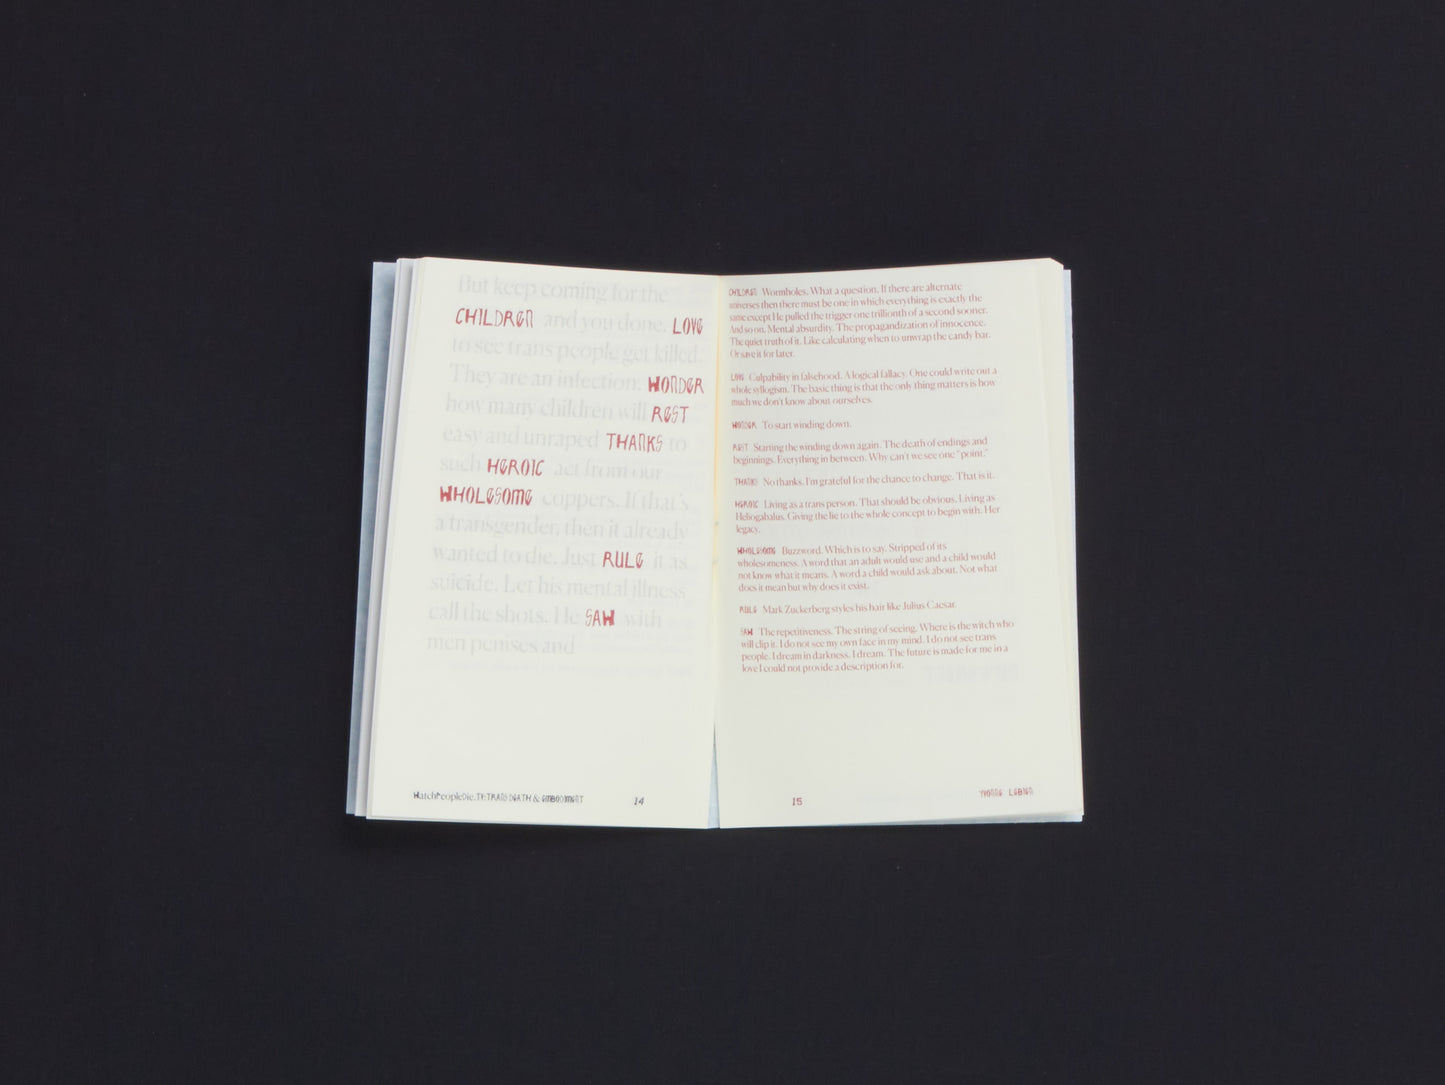 But keep coming for the
CHILDREN and you done. LOVE
to see trans people get killed.
They are an infection. WONDER
how many children will REST
easy and unraped THANKS to
such HEROIC act from our
WHOLESOME coppers. If that's
a transgender, then it already
wanted to die. Just RULE it as
suicide. Let his mental illness
call the shots. He SAW with
men penises and
WatchPeopleDie.TV: TRANS DEATH & EMBODIMENT 14
CHILDREN Wormholes. What a question. If there are alternate
universes then there must be one in which everything is exactly the
same except He pulled the trigger one trillionth of a second sooner.
And so on. Mental absurdity. The propagandization of innocence.
The quiet truth of it. Like calculating when to unwrap the candy bar.
Or save it for later.
LOVE Culpability in falsehood. A logical fallacy. One could write out a
whole syllogism. The basic thing is that the only thing matters is how
much we don't know about ourselves.
WONDER To start winding down.
REST Starting the winding down again. The death of endings and
beginnings. Everything in between. Why can't we see one "point."
THANKS No thanks. I'm grateful for the chance to change. That is it.
HEROIC Living as a trans person. That should be obvious. Living as
Heliogabalus. Giving the lie to the whole concept to begin with. Her
legacy.
WHOLESOME Buzzword. Which is to say. Stripped of its
wholesomeness. A word that an adult would use and a child would
not know what it means. A word a child would ask about. Not what
does it mean but why does it exist.
RULE Mark Zuckerberg styles his hair like Julius Caesar.
SAW The repetitiveness. The string of seeing. Where is the witch who
will clip it. I do not see my own face in my mind. I do not see trans
people. I dream in darkness. I dream. The future is made for me in a
love I could not provide a description for.
15 YVONNE LEBIEN